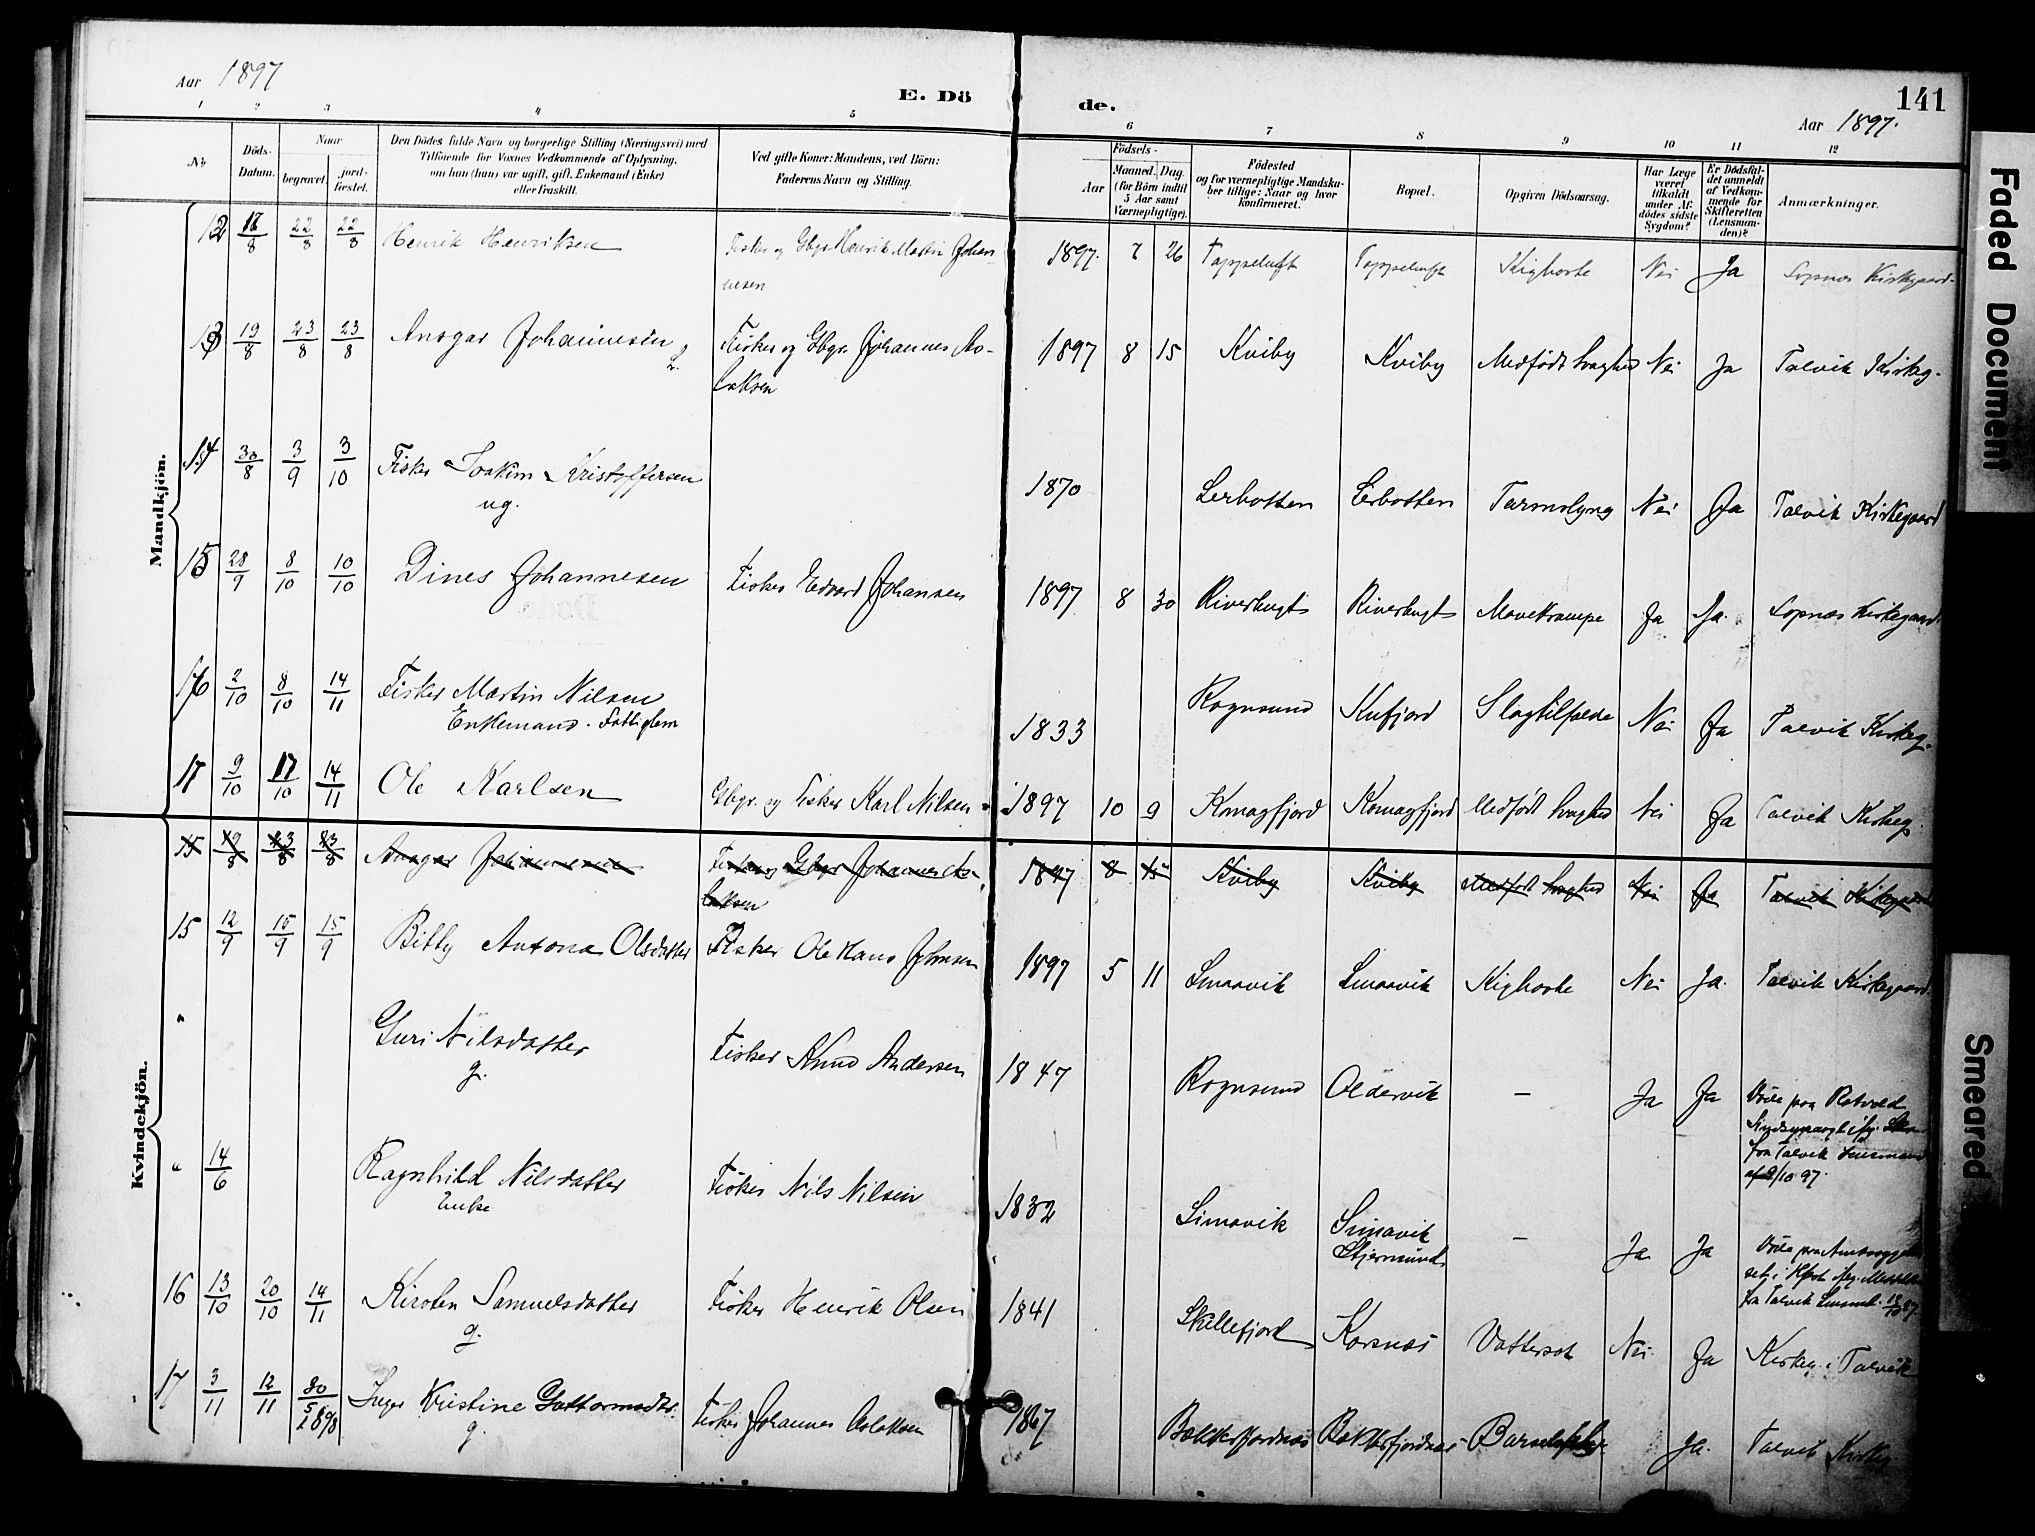 Aar 1897
E. Dö
1 2 3 4 5
№
Döds-
Datum.
Naar
begravet.
jord-
fæstet.
Den Dödes fulde Navn og borgerlige Stilling (Næringsvei) med
Tilföiende for Voxnes Vedkommende af Oplysning,
om han (hun) var ugift, gift, Enkemand (Enke)
eller fraskilt.
Ved gifte Koner: Mandens, ved Börn:
Faderens Navn og Stilling.
de.
141
Aar 1897.
6 7 8 9 10 11 12
Födsels-
Aar
Maaned. Dag.
(for Börn indtil
5 Aar samt
Værnepligtige).
Födested
og for værnepligtige Mandska-
ber tillige: Naar og hvor
konfirmeret.
Bopæl.
Opgiven Dödsaarsag.
Har Læge
været
tilkaldt
under Af-
dödes sidste
Sygdom?
Er Dödsfal-
det anmeldt
af Vedkom-
mende for
Skifteretten
(Lensman-
den)?
Anmærkninger.
Mandkjön.
12 18/8 22/8 22/8 Henrik Henriksen Fisker og Gbgr. Henrik Martin Johan-
nesen
1897. 7 26 Tappeluft Tappeluft Kighoste Nei Ja Sopnæs Kirkegaard.
13 19/8 23/8 23/8 Ansgar Johannesen Fisker og Gbgr. Johannes As-
laksen
1897 8 15 Kviby Kviby Medfödt svaghed Nei Ja Talvik Kirkeg.
14 30/8 3/9 3/10 Fisker Joakim Kristoffersen
ug.
1870 Lerbotten Lerbotten Tarmslyng Nei Ja Talvik Kirkegaard
15 28/9 8/10 10/10 Dines Johannesen Fisker Edvard Johansen
1897 8 30 Riverbugt Riverbugt Mavekrampe Ja Ja. Sopnæs Kirkegaard.
16 2/10 8/10 14/11 Fisker Martin Nilsen
Enkemand. Fattiglem
1833 Rognsund Kufjord Slagtilfælde Nei Ja Talvik Kirkeg.
17 9/10 17/10 14/11 Ole Karlsen Gbgr. og Fisker Karl Nilsen
1897 10 9 Komagfjord Komagfjord Medfödt svaghed Nei Ja Talvik Kirkeg.
Kvindekjön.
15 19/8 23/8 23/8 Ansgar Johannesen Fisker og Gbgr Johannes As-
laksen
1897 8 15 Kviby Kviby Medfödt svaghed Nei Ja Talvik Kirkegaard
15 12/9 15/9 15/9 Bitty Antona Olsdatter Fisker Ole Hans Johnsen
1897 5 11 Simavik Simavik Kighoste Nei Ja. Talvik Kirkegaard.
" Guri Nilsdatter
g.
Fisker Knud Andersen
1847 Rognsund Oldervik – Ja Ja
Döde paa Rotvold
fra Talvik Lensmand
af 9/10 97.
" 14/6 Ragnhild Nilsdatter
Enke
Fisker Nils Nilsen
1832 Simavik Simavik
Stjernsund
– Ja Ja
Döde paa Amtssyge
fra Talvik Lensmd.
16 13/10 20/10 14/11 Kirsten Samuelsdatter
g.
Fisker Henrik Olsen
1841 Skillefjord Korsnæs Vattersot Nei Ja Kirkeg. i Talvik
17 3/11 12/11 30/5 1898 Inger Kristine Guttormsdtr.
g.
Fisker Johannes Aslaksen
1867 Bekkefjordnæs Bekkefjordnæs Ja. Talvik Kirkeg
Faded Document
Smeared